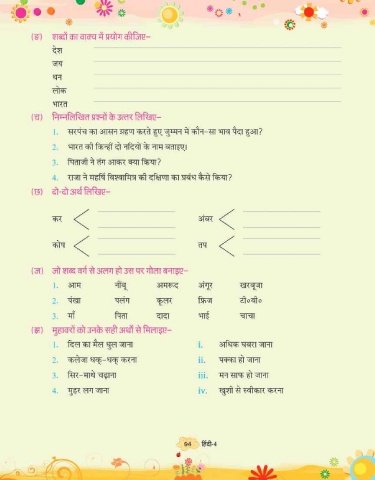 (ङ) शब्दों का वाक्य में प्रयोग कीजिए–
देश
जय
धन
लोक
भारत
(च) निम्नलिखित प्रश्नों के उत्तर लिखिए–
1. सरपंच का आसन ग्रहण करते हुए जुम्मन में कौन-सा भाव पैदा हुआ?
2. भारत की किन्हीं दो नदियों के नाम बताइए।
3. पिताजी ने तंग आकर क्या किया?
4. राजा ने महर्षि विश्वामित्र की दक्षिणा का प्रबंध कैसे किया?
(छ) दो-दो अर्थ लिखिए–
कर अंबर
कोष तप
(ज) जो शब्द वर्ग से अलग हो उस पर गोला बनाइए–
1. आम नींबू अमरूद अंगूर खरबूजा
2. पंखा पलंग कूलर फ्रिज टी०वी०
3. माँ पिता दादा भाई चाचा
(झ) मुहावरों को उनके सही अर्थों से मिलाइए–
1. दिल का मैल धुल जाना i. अधिक घबरा जाना
2. कलेजा धक्-धक् करना ii. पक्का हो जाना
3. सिर-माथे चढ़ाना iii. मन साफ हो जाना
4. मुहर लग जाना iv. खुशी से स्वीकार करना
94 हिंदी-4